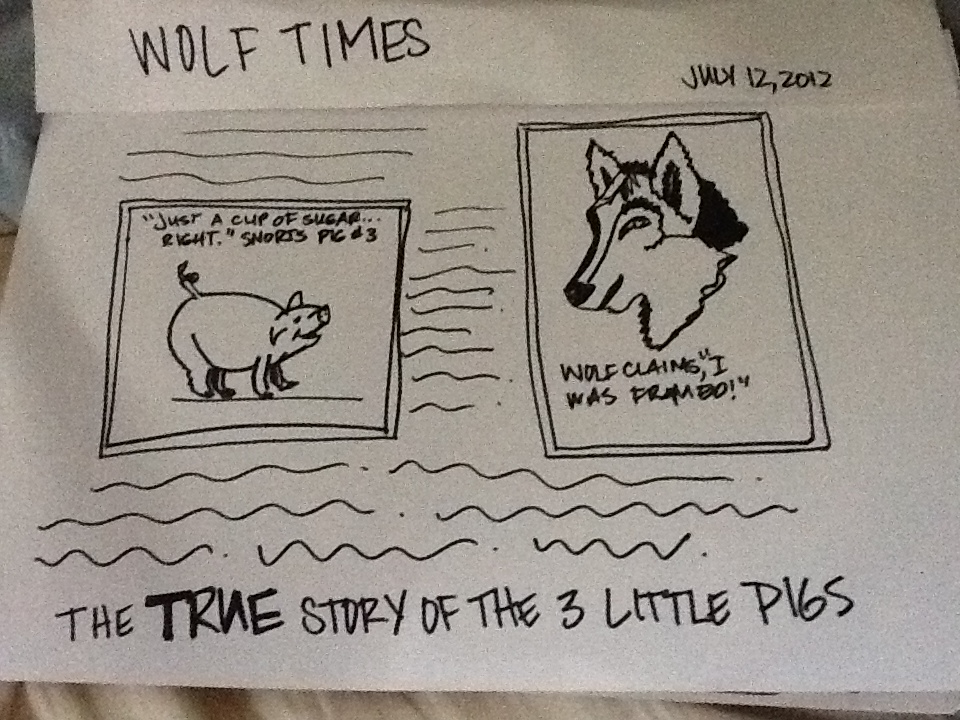 WOLF TIMES
JULY 12, 2012
"JUST A CUP OF SUGAR...
RIGHT." SNORTS PIG #3
WOLF CLAIMS, "I
WAS FRAMED!"
THE TRUE STORY OF THE 3 LITTLE PIGS